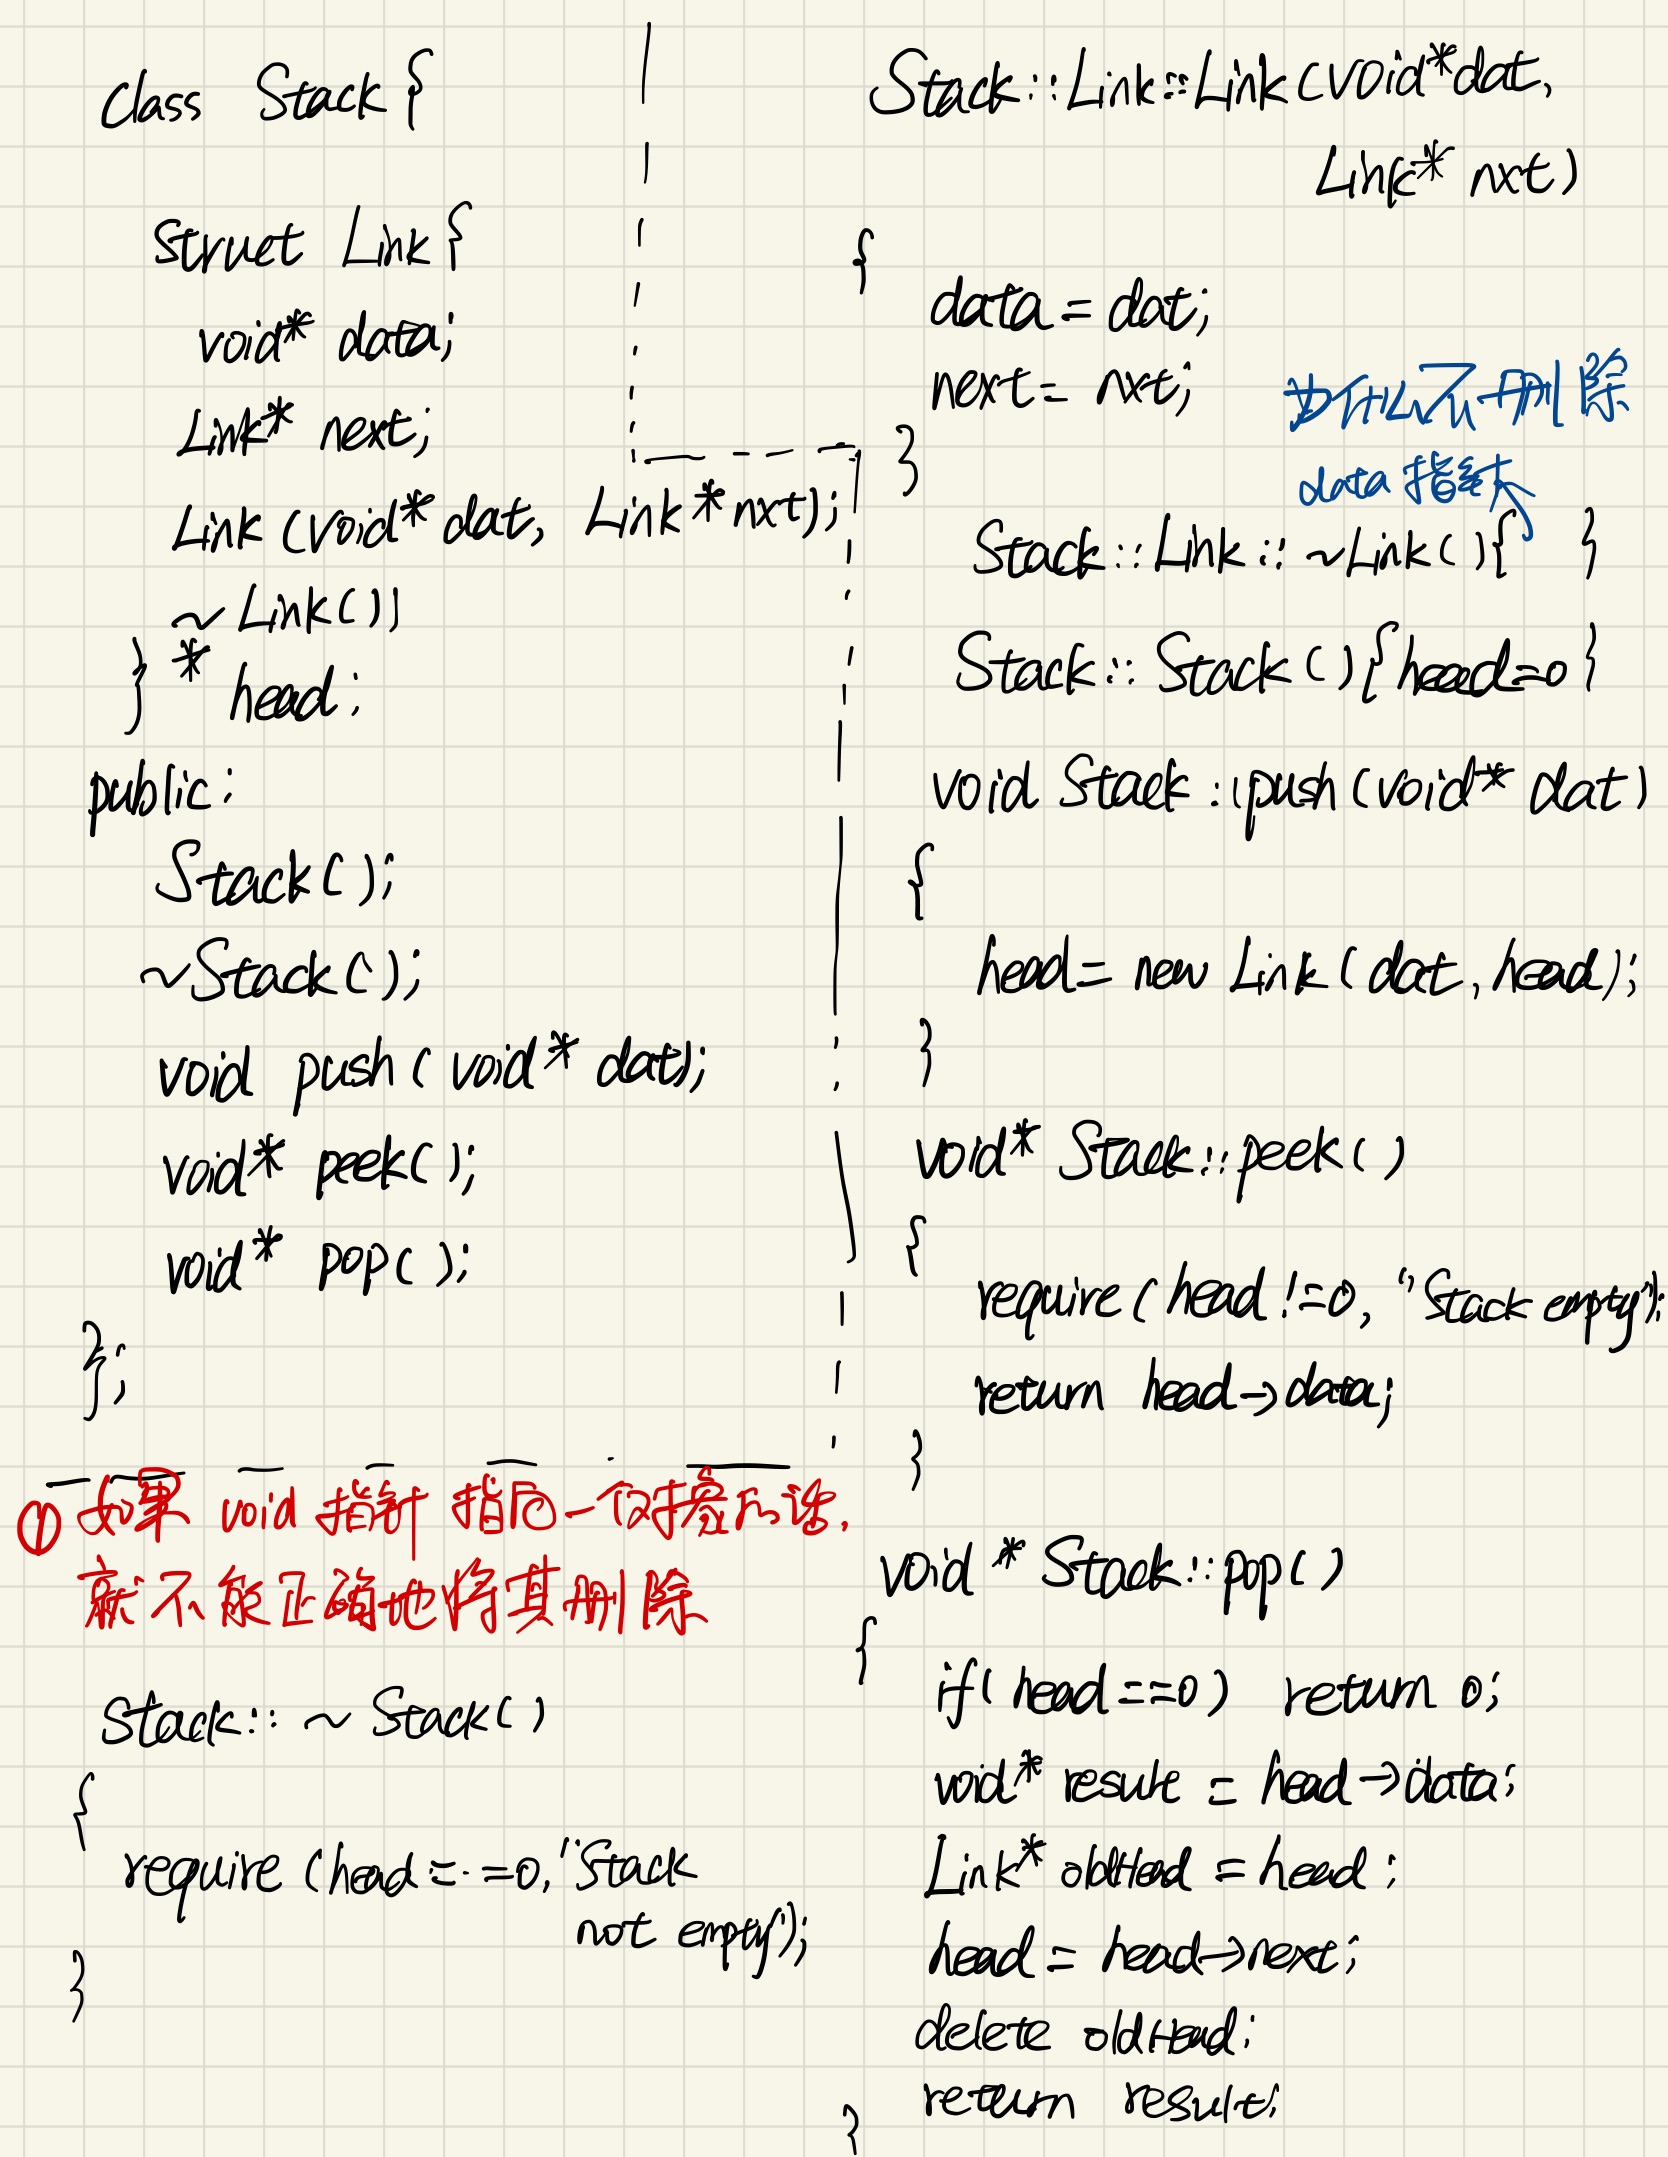 class Stack {
struct Link {
void* data;
Link* next;
Link (void* dat, Link* nxt);
~ Link();
} * head;
public:
Stack();
~Stack();
void push( void* dat);
void* peek();
void* pop();
};
① 如果 void 指针 指向一个对象的话,
就不能正确地将其删除
Stack:: ~ Stack()
{
require (head == 0, "Stack
not empty");
}
Stack::Link::Link (void* dat,
Link* nxt)
{
data = dat;
next = nxt;
}
为什么不删除
data 指针
Stack::Link:: ~Link(){ }
Stack:: Stack(){head=0}
void Stack::push (void* dat)
{
head = new Link (dat, head);
}
void* Stack::peek()
{
require (head !=0, "Stack empty");
return head->data;
}
void * Stack::pop()
{
if( head ==0) return 0;
void* result = head->data;
Link* oldHead = head;
head = head->next;
delete oldHead;
return result;
}